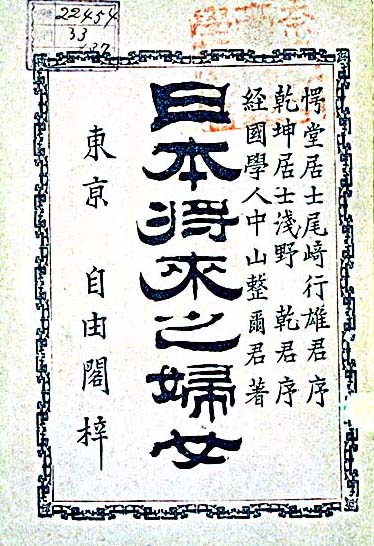 22454
33
愕堂居士尾﨑行雄君序
乾坤居士淺野乾君序
經國學人中山整爾君著
日本將來之婦女
東京 自由閣梓